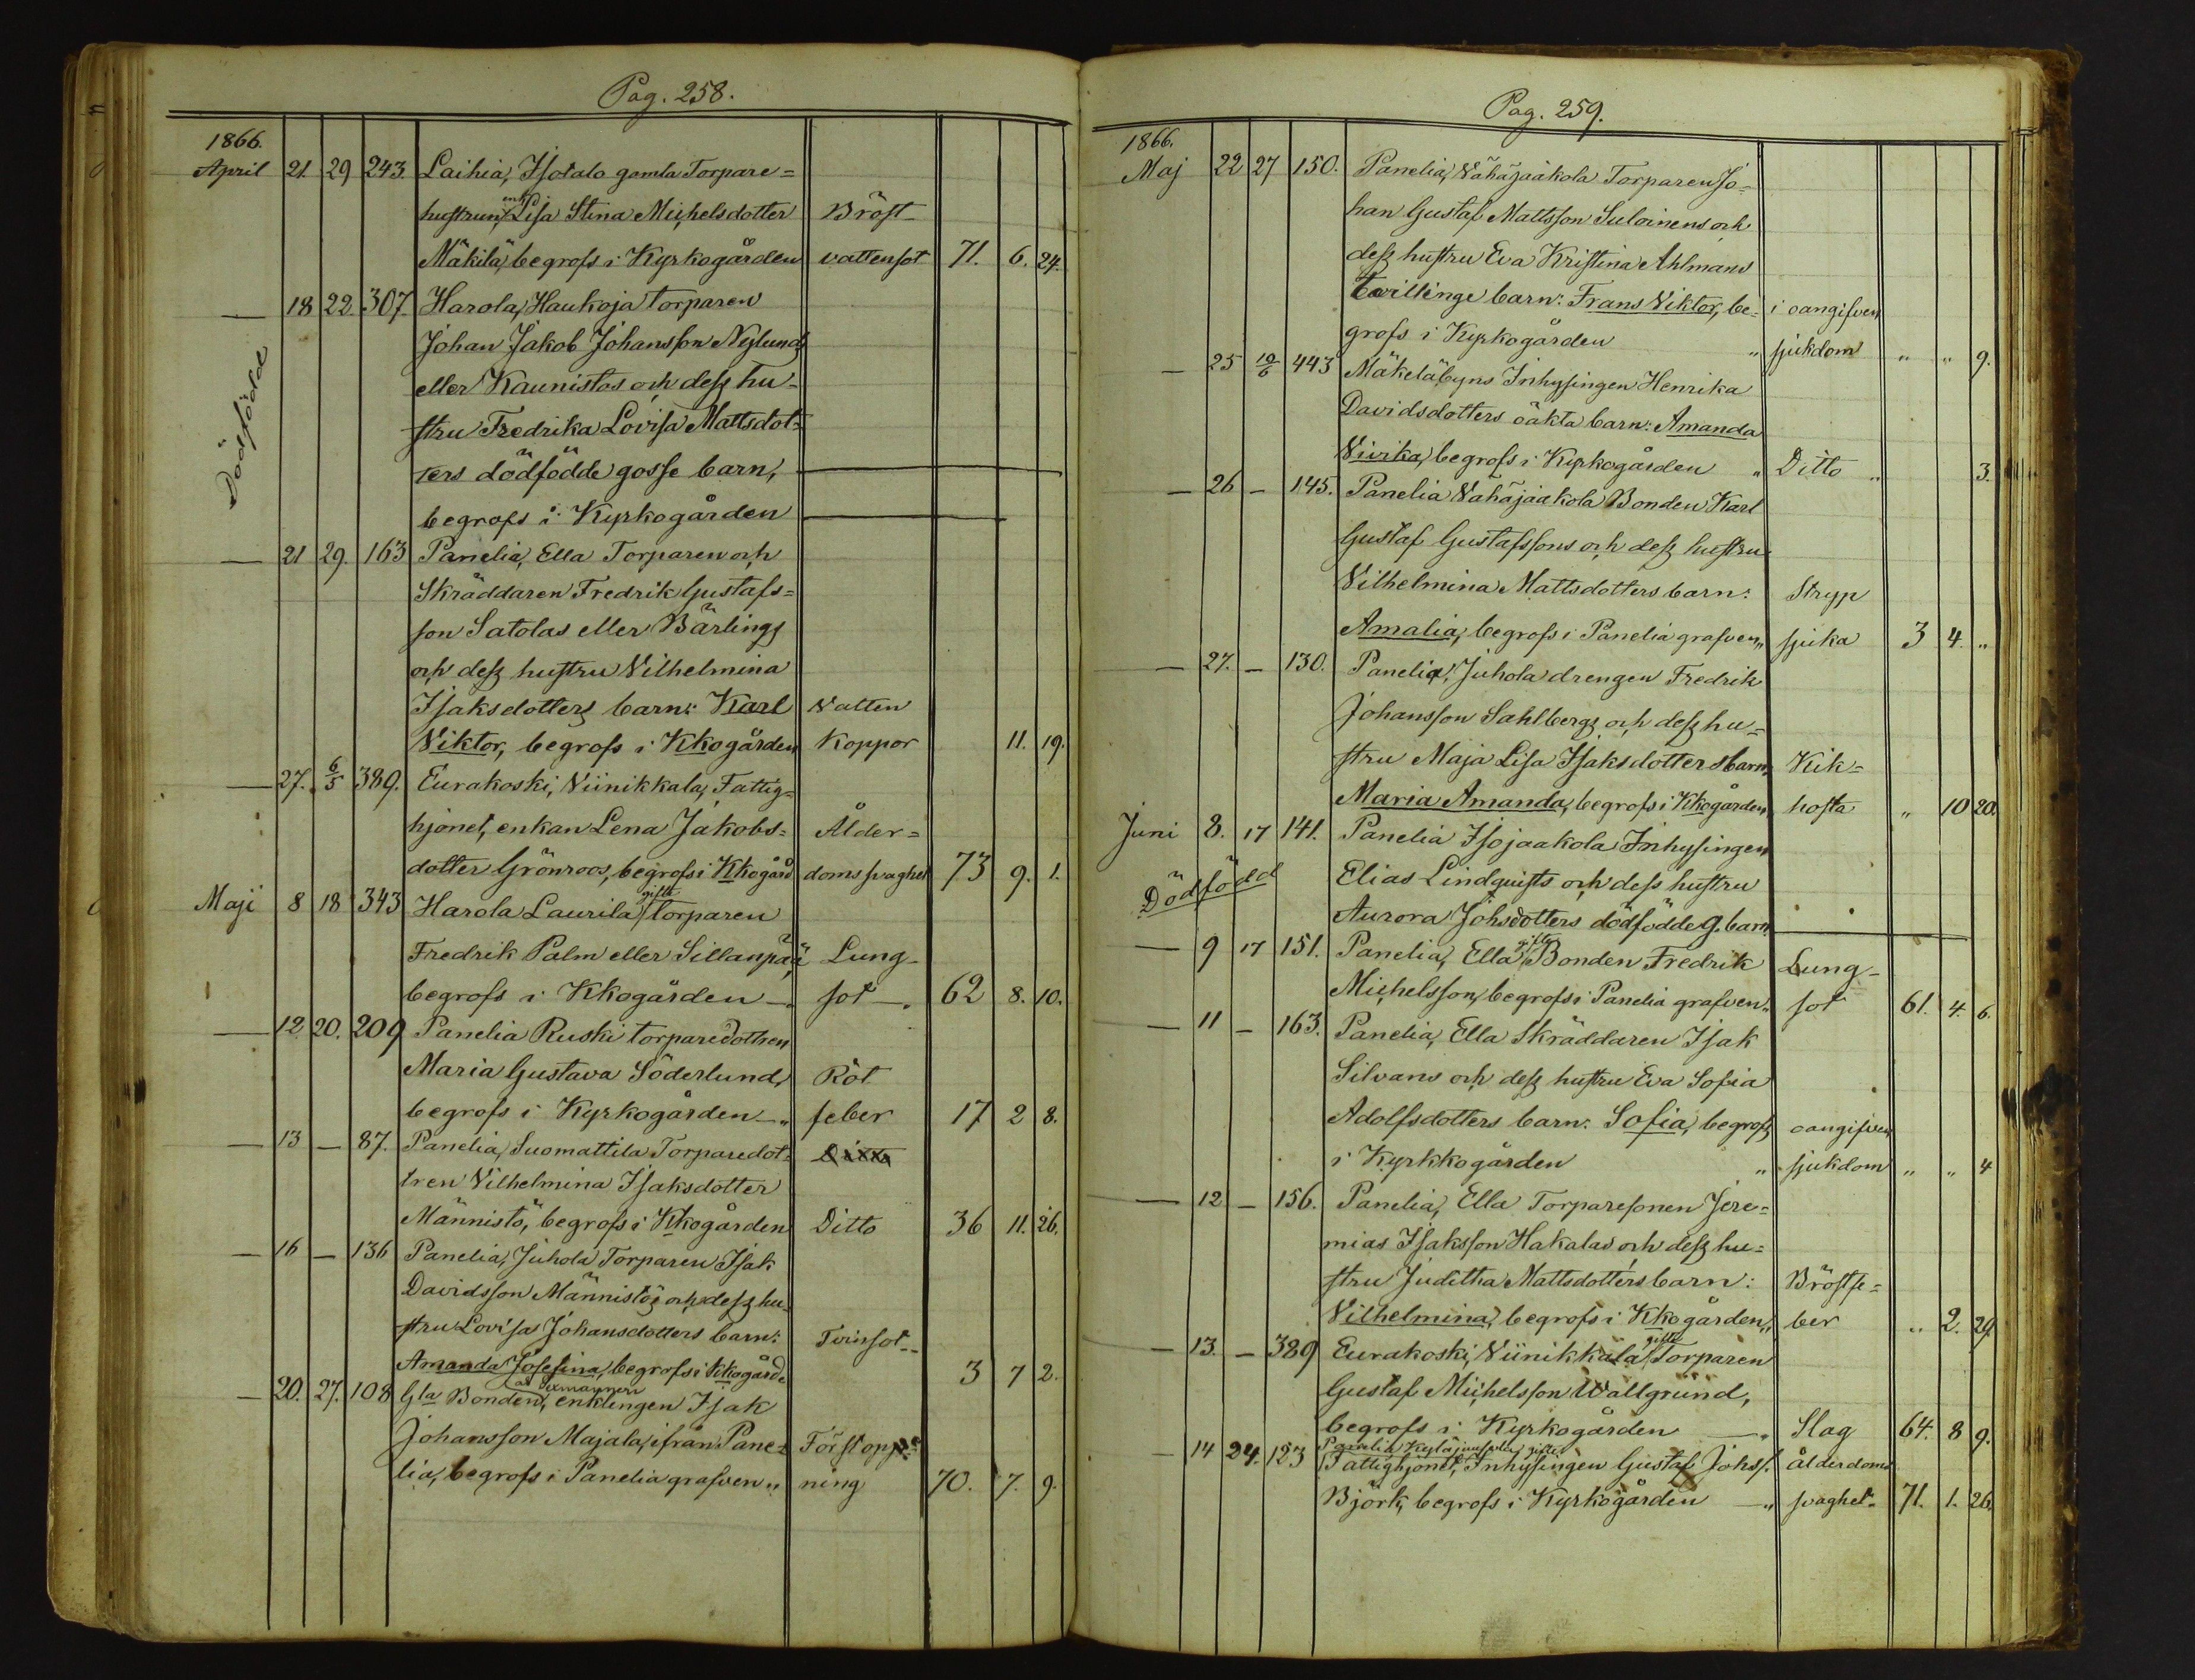 Pag. 258.
1866.
April 21. 29 243. Laihia, Isotalo gamla Torpare=
hustrun, enk. Lisa Stina Michelsdotter Bröst-
Mäkilä, begrofs i Kyrkogården vattensot 71. 6. 24.
— 18 22. 307. Harola, Haukoja torparen
Johan Jakob Johansson Nylunds
eller Kaunistos och dess hu-
Dödfödde
stru Fredrika Lovisa Mattsdot-
ters dödfödde gosse barn,
begrofs i Kyrkogården
— 21 29. 163 Panelia, Ella Torparen och
Skräddaren Fredrik Gustafs=
son Satolas eller Bärlings
och dess hustru Vilhelmina
Isaksdotters barn: Karl Vatten
Viktor, begrofs i Kkogården Koppor 11. 19.
— 27. 6/5 389. Eurakoski, Viinikkala, Fattig-
hjonet, enkan Lena Jakobs= Ålder=
dotter Grönroos, begrofs i Kkogård domssvaghet 73 9. 1.
Maji 8 18 343 Harola Laurila gifte torparen
Fredrik Palm eller Sillanpää Lung-
begrofs i Kkogården sot 62 8. 10.
— 12. 20. 209 Panelia Ruski torparedottren
Maria Gustava Söderlund, Röt
begrofs i Kyrkogården feber 17 2 8.
— 13 — 87. Panelia, Suomattila Torparedot= Ditto
tren Vilhelmina Isaksdotter
Männistö, begrofs i Kkogården Ditto 36 11. 26.
— 16 — 136 Panelia, Juhola Torparen Isak
Davidsson Männistös och dess hu-
stru Lovisa Johansdotters barn: Tvinsot
Amanda Josefina, begrofs i Kkogårde 3 7 2.
— 20. 27. 108 Gla Bonden, enklingen Isak
Johansson Majala, ifrån Pane- Förstopp-
lia, begrofs i Panelia grafven „ ning 70. 7. 9.
Pag. 259.
1866.
Maj 22 27 150. Panelia, Vähäjaakola Torparen Jo-
han Gustaf Mattsson Suloinens och
dess hustru Eva Kristina Ahlmans
tvillinge barn: Frans Viktor, be- i oangifven
grofs i Kyrkogården „ sjukdom „ „ 9.
— 25 10/6 443 Mäkeläbyns Inhysingen Henrika
Davidsdotters oäkta barn: Amanda
Vivika, begrofs i Kyrkogården „ Ditto „ 3.
— 26 — 145. Panelia Vähäjaakola Bonden Karl
Gustaf Gustafssons och dess hustru
Vilhelmina Mattsdotters barn: Stryp
Amalia, begrofs i Panelia grafven „ sjuka 3 4. „
— 27. — 130. Panelia, Juhola drengen Fredrik
Johansson Sahlbergs och dess hu=
stru Maja Lisa Isaksdotters barn, Kik=
Maria Amanda, begrofs i Kkogården, hosta „ 10 20.
Juni 8. 17 141. Panelia Isojaakola Inhysingen
Dödfödd Elias Lindquists och dess hustru
Aurora Johsdotters dödfödde g. barn
— 9 17 151. Panelia, Ella gifte Bonden Fredrik Lung-
Michelsson, begrofs i Panelia grafven „ sot 61. 4. 6.
— 11 — 163. Panelia, Ella Skräddaren Isak
Silvans och dess hustru Eva Sofia
Adolfsdotters barn: Sofia, begrofs oangifven
i Kyrkkogården „ sjukdom „ „ 4
— 12 — 156. Panelia, Ella Torparesonen Jere=
mias Isaksson Hakalas och dess hu=
stru Juditha Mattsdotters barn: Bröstfe=
Vilhelmina, begrofs i Kkogården, ber „ 2. 29.
— 13. — 389 Eurakoski, Viinikkala gifte Torparen
Gustaf Michelsson Wallgrund,
begrofs i Kyrkogården Slag 64. 8 9.
— 14 24. 123 Panelia Kyläjunnola, gifte
Fattighjonet, Inhysingen Gustaf Johss. ålderdoms
Björk, begrofs i Kyrkogården svaghet 71. 1. 26.